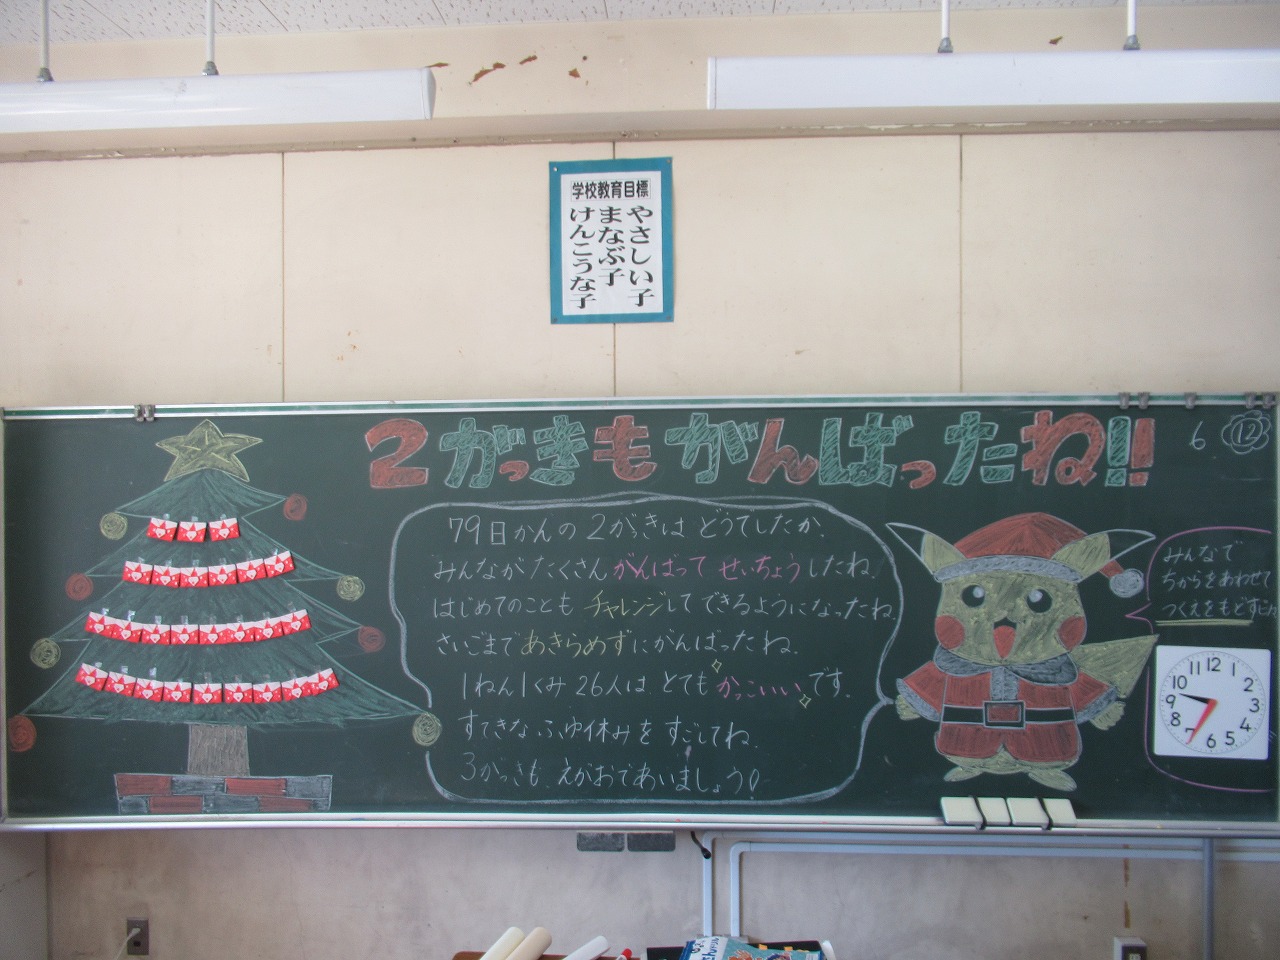 学校教育目標
やさしい子
まなぶ子
けんこうな子
2がっきもがんばったね!!
6 12
79日かんの2がっきは どうでしたか。
みんながたくさん がんばって せいちょうしたね。
はじめてのことも チャレンジして できるようになったね。
さいごまで あきらめずに がんばったね。
1ねん1くみ 26人は とても かっこいい です。
すてきな ふゆ休みを すごしてね。
3がっきも えがおであいましょう!
みんなで
ちからをあわせて
つくえをもどす
12
1
2
3
4
5
6
7
8
9
10
11